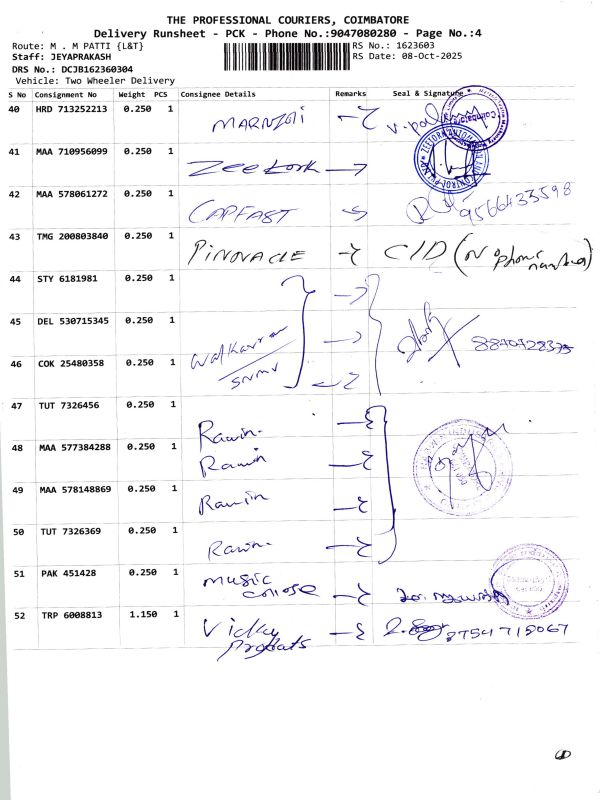 THE PROFESSIONAL COURIERS, COIMBATORE
Delivery Runsheet - PCK - Phone No.:9047080280 - Page No.:4
Route: M . M PATTI {L&T} RS No.: 1623603
Staff: JEYAPRAKASH RS Date: 08-Oct-2025
DRS No.: DCJB162360304
Vehicle: Two Wheeler Delivery
S No Consignment No Weight PCS Consignee Details Remarks Seal & Signature
40 HRD 713252213 0.250 1
41 MAA 710956099 0.250 1 Zeetork
42 MAA 578061272 0.250 1 CAPFAST 9566433598
43 TMG 200803840 0.250 1 PINOVACLE CID (No phone number)
44 STY 6181981 0.250 1
45 DEL 530715345 0.250 1
46 COK 25480358 0.250 1 SNMV
47 TUT 7326456 0.250 1 Rawin
48 MAA 577384288 0.250 1 Rawin
49 MAA 578148869 0.250 1 Rawin
50 TUT 7326369 0.250 1 Rawin
51 PAK 451428 0.250 1 music
52 TRP 6008813 1.150 1 Vicky 8754715067